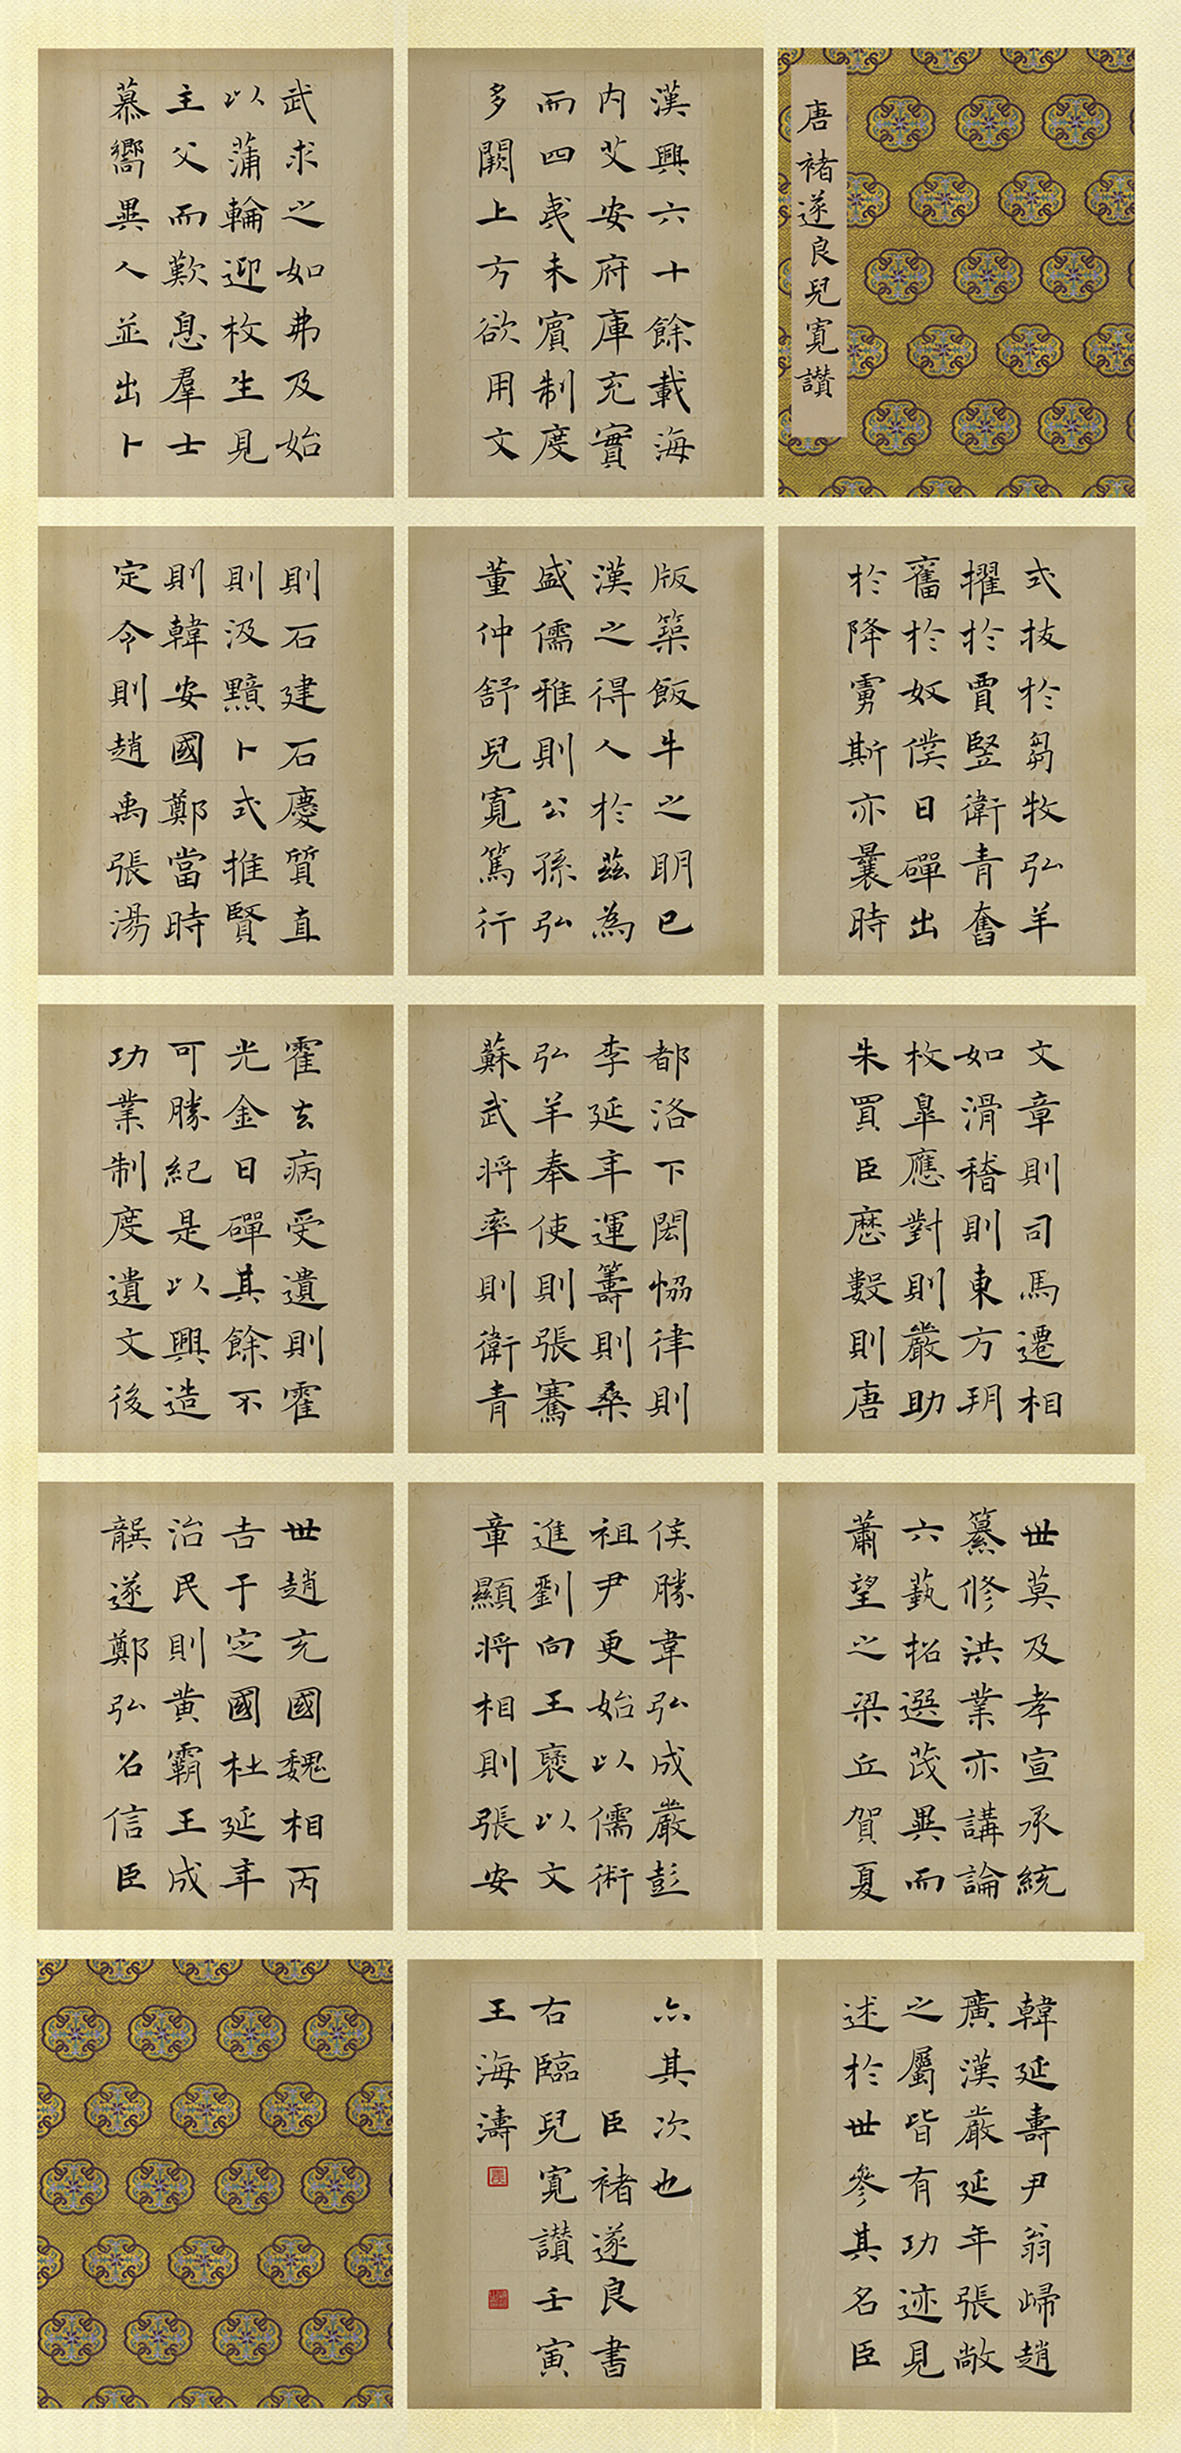 唐褚遂良兒寬讚
漢興六十餘載海
內艾安府庫充實
而四夷未賓制度
多闕上方欲用文
武求之如弗及始
以蒲輪迎枚生見
主父而歎息羣士
慕嚮異人並出卜
式拔於芻牧弘羊
擢於賈豎衛青奮
舊於奴僕日磾出
於降虜斯亦曩時
版築飯牛之明已
漢之得人於茲為
盛儒雅則公孫弘
董仲舒兒寬篤行
則石建石慶質直
則汲黯卜式推賢
則韓安國鄭當時
定令則趙禹張湯
文章則司馬遷相
如滑稽則東方朔
枚皋應對則嚴助
朱買臣歷數則唐
都洛下閎恊律則
李延年運籌則桑
弘羊奉使則張騫
蘇武將率則衛青
霍去病受遺則霍
光金日磾其餘不
可勝紀是以興造
功業制度遺文後
世莫及孝宣承統
纂修洪業亦講論
六藝招選茂異而
蕭望之梁丘賀夏
侯勝韋弘成嚴彭
祖尹更始以儒術
進劉向王褒以文
章顯將相則張安
世趙充國魏相丙
吉于定國杜延年
治民則黃霸王成
龔遂鄭弘召信臣
韓延壽尹翁歸趙
廣漢嚴延年張敞
之屬皆有功迹見
述於世參其名臣
亦其次也
臣褚遂良書
右臨兒寬讚壬寅
王海濤